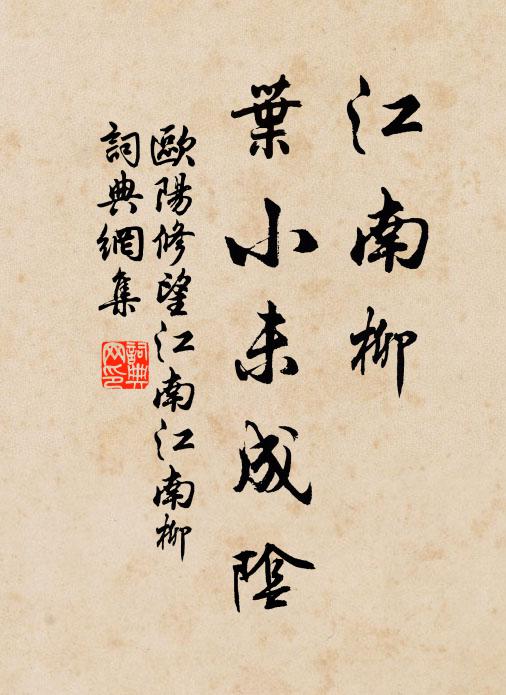 江南柳
葉小未成陰
歐陽修望江南江南柳
詞典網集
詞典网印